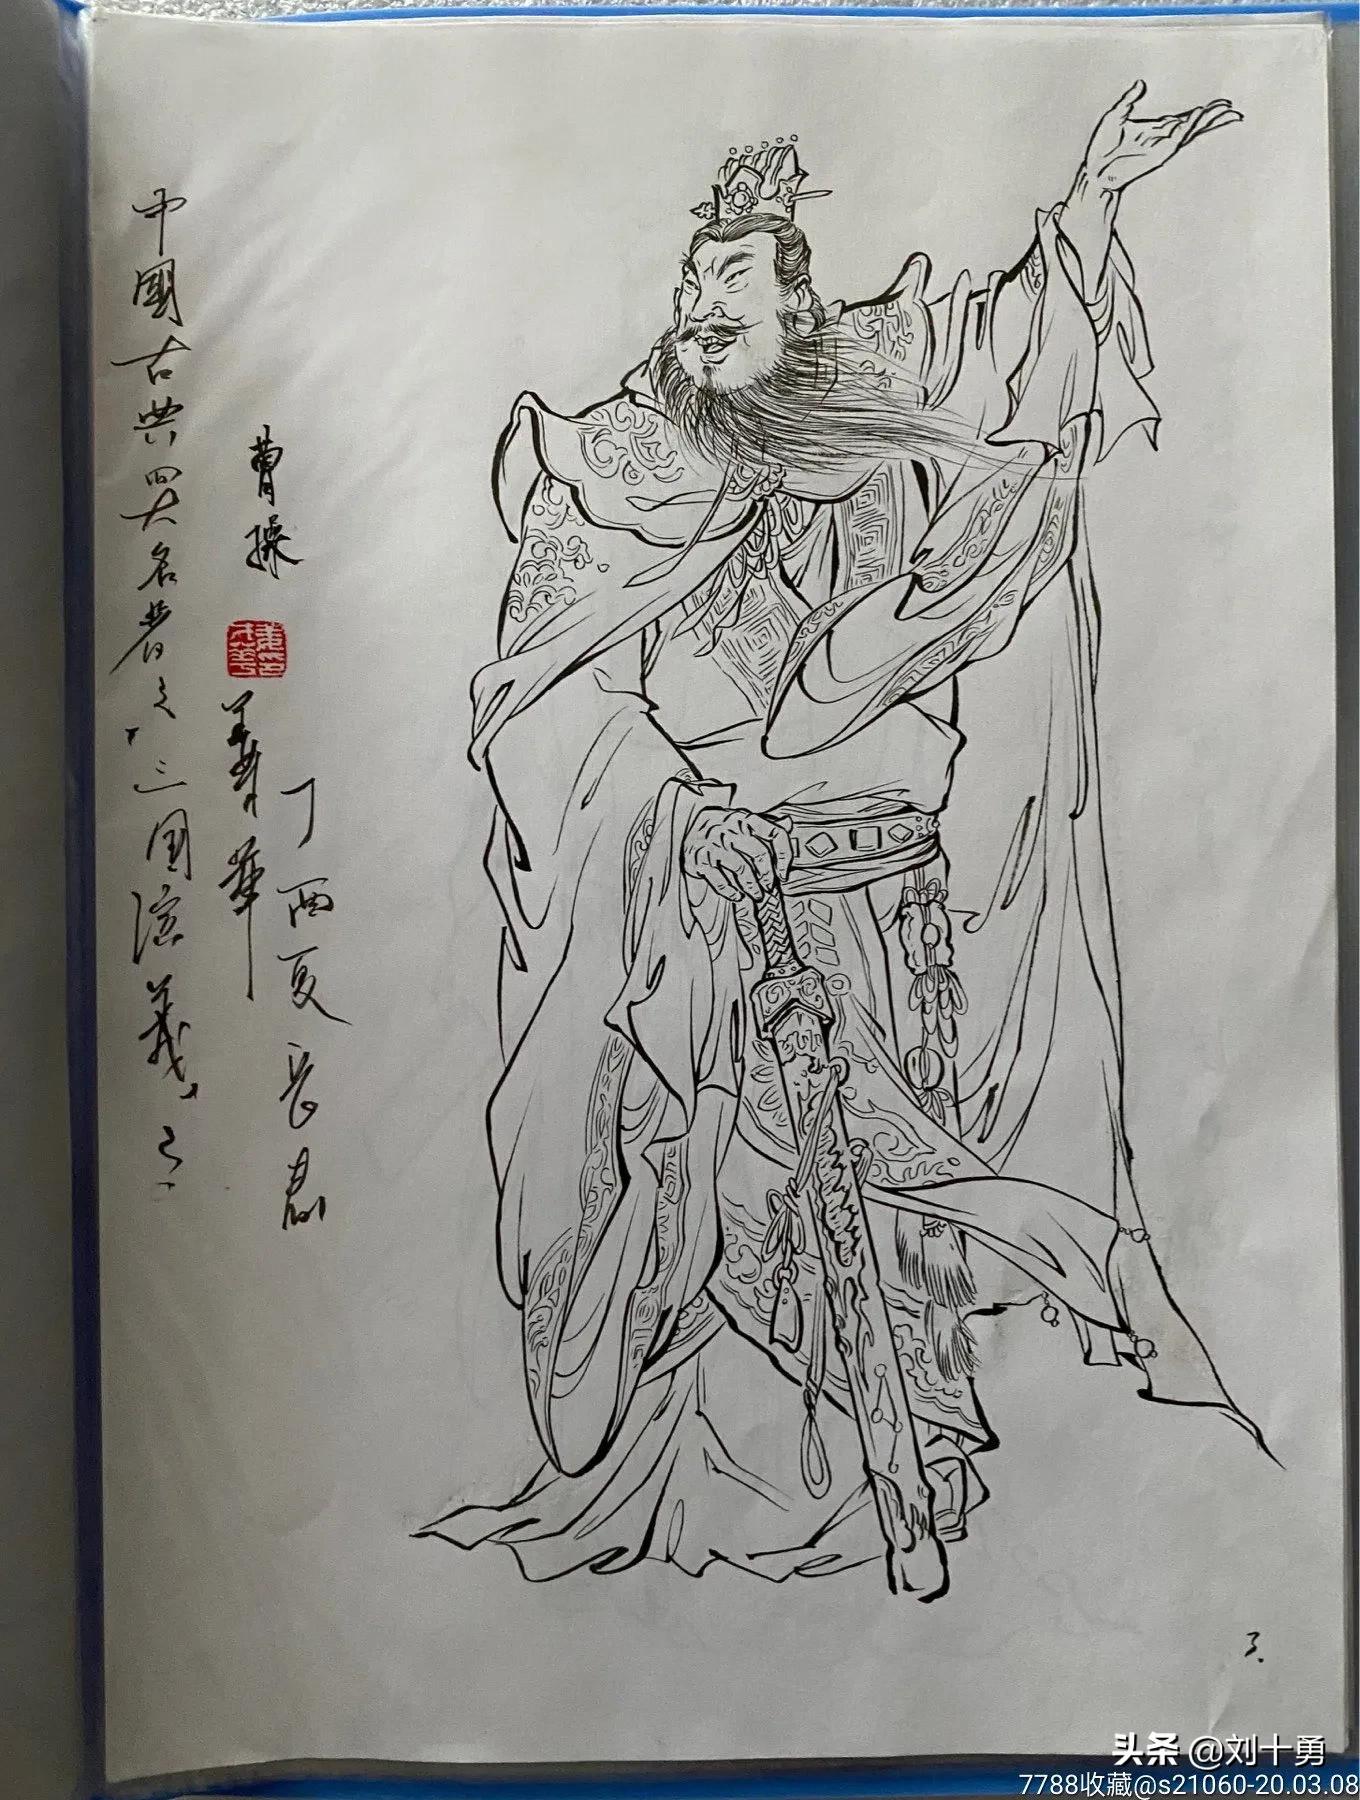 中國古典四大名著之
『三国演義』之
曹操
華
丁酉夏長君
3.
头条 @刘十勇
7788收藏@s21060-20.03.08